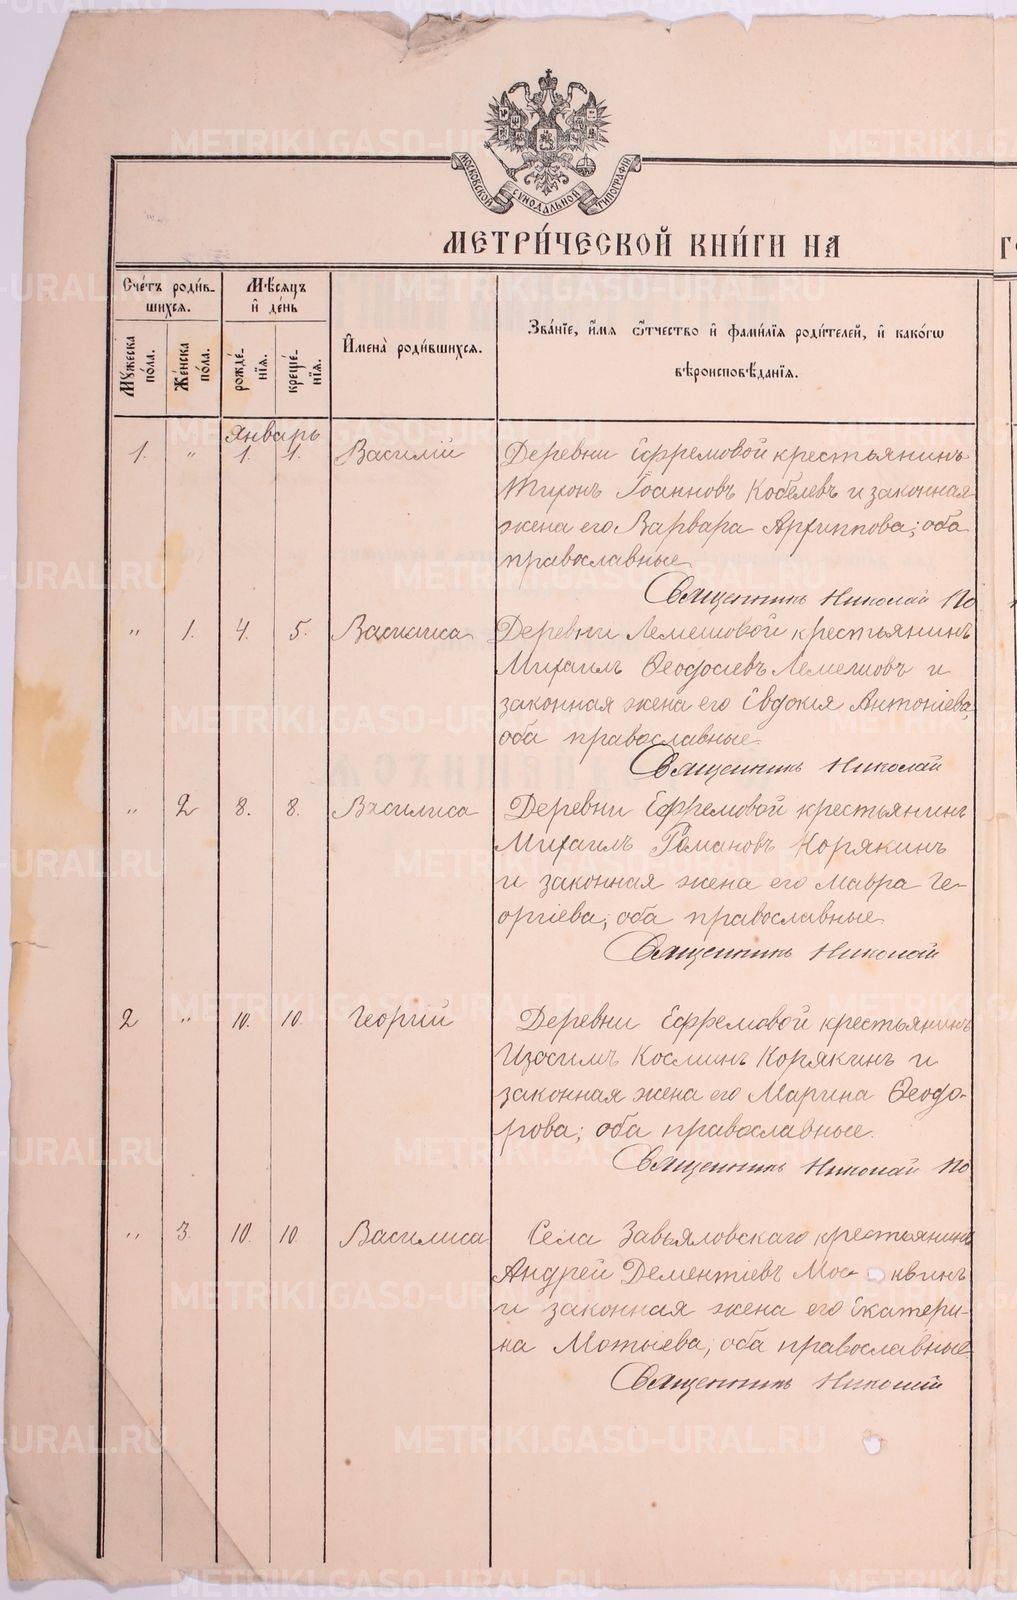 МОСКОВСКОЙ СѴНОДАЛЬНОЙ ТИПОГРАФІИ
МЕТРИ́ЧЕСКОЙ КНИ́ГИ НА
Сче́тъ роди́в-
шихся.
Мѣсяцъ
и̑ де́нь
Мꙋжеска по́ла.
Же́нска по́ла.
рожде́нїѧ.
креще́нїѧ.
И̑мена̀ роди́вшихся.
Зва́нїе, и̑́мѧ ѻ҆́тчество и̑ фами́лїѧ роди́телей, и̑ како́гѡ
вѣроисповѣ́данїѧ.
Январь
1. " 1. 1. Василій Деревни Ефремовой крестьянинъ
Тихонъ Іоанновъ Кобелевъ и законная
жена его Варвара Архиппова; оба
православные
Священникъ Николай По
" 1. 4. 5. Василиса Деревни Лемешовой крестьянинъ
Михаилъ Ѳеодосіевъ Лемешовъ и
законная жена его Евдокія Антоніева,
оба православные
Священникъ Николай
" 2 8. 8. Василиса Деревни Ефремовой крестьянинъ
Михаилъ Романовъ Корякинъ
и законная жена его Мавра Ге-
оргіева, оба православные
Священникъ Николай
2 " 10. 10. Георгій Деревни Ефремовой крестьянинъ
Изосимъ Косминъ Корякинъ и
законная жена его Марина Ѳеодо-
рова; оба православные.
Священникъ Николай По
" 3. 10. 10. Василиса Села Завьяловскаго крестьянинъ
Андрей Дементіевъ Мос- квинъ
и законная жена его Екатери-
на Мотыева, оба православные
Священникъ Николай
METRIKI.GASO-URAL.RU